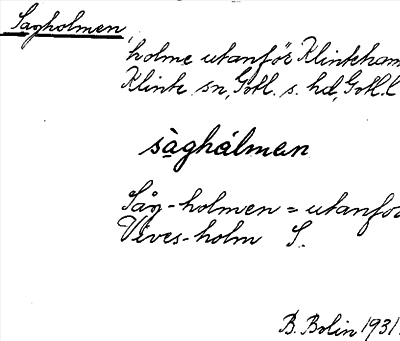 Sågholmen,
holme utanför Klinteham
Klinte sn, Gotl. s. hd, Gotl. l
sàghálmen
Såg-holmen = utanför
Vives-holm S.
B. Bolin 1931.